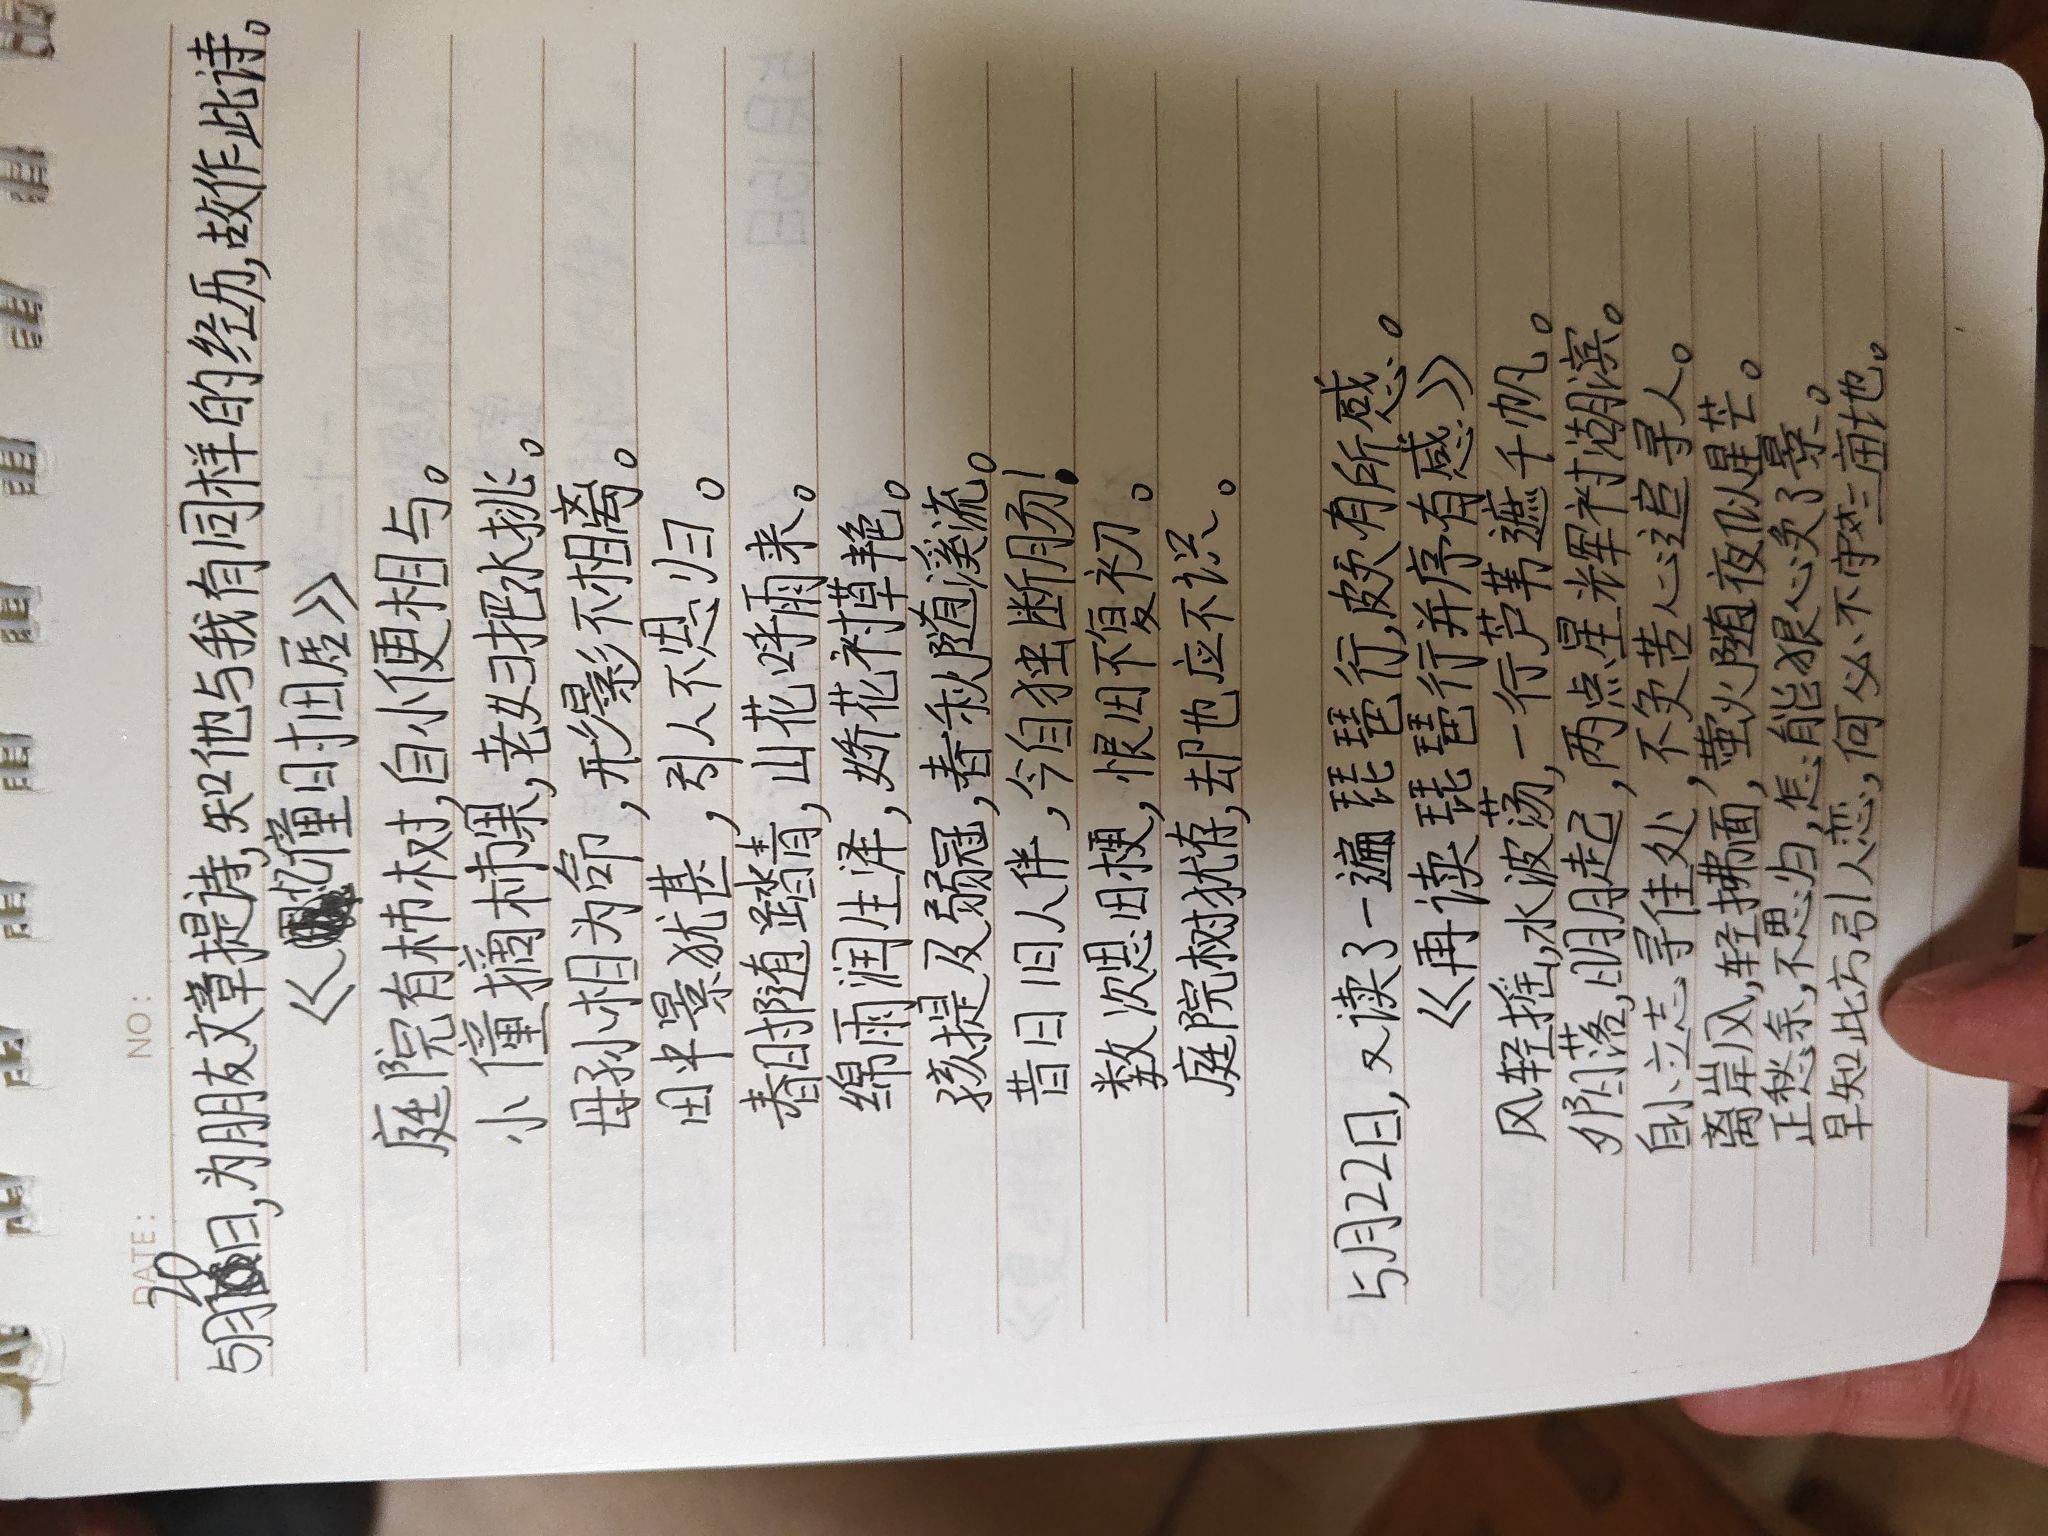 NO:
DATE:
5月20日,为朋友文章提诗,知他与我有同样的经历,故作此诗。
《忆童时田居》
庭院有柿树,自小便相与。
小僮摘柿果,老妇把水挑。
母孙相为命,形影不相离。
田中景犹甚,引人不思归。
春时随踏青,山花呼雨来。
绵雨润生泽,娇花衬草艳。
孩提及弱冠,春秋随溪流。
昔日旧人伴,今自独断肠!
数次思田梗,恨田不复初。
庭院树犹存,却也应不识。
5月22日,又读了一遍琵琶行,颇有所感。
《再读琵琶行并序有感》
风轻摇,水波荡,一行芦苇遮千帆。
夕阳落,明月起,两点星辉衬湖滨。
自小立志寻佳处,不负苦心追寻人。
离岸风,轻拂面,萤火随夜似星芒。
正愁余,不思归,怎能狠心负了景。
早知此方引人恋,何必不守三亩地。